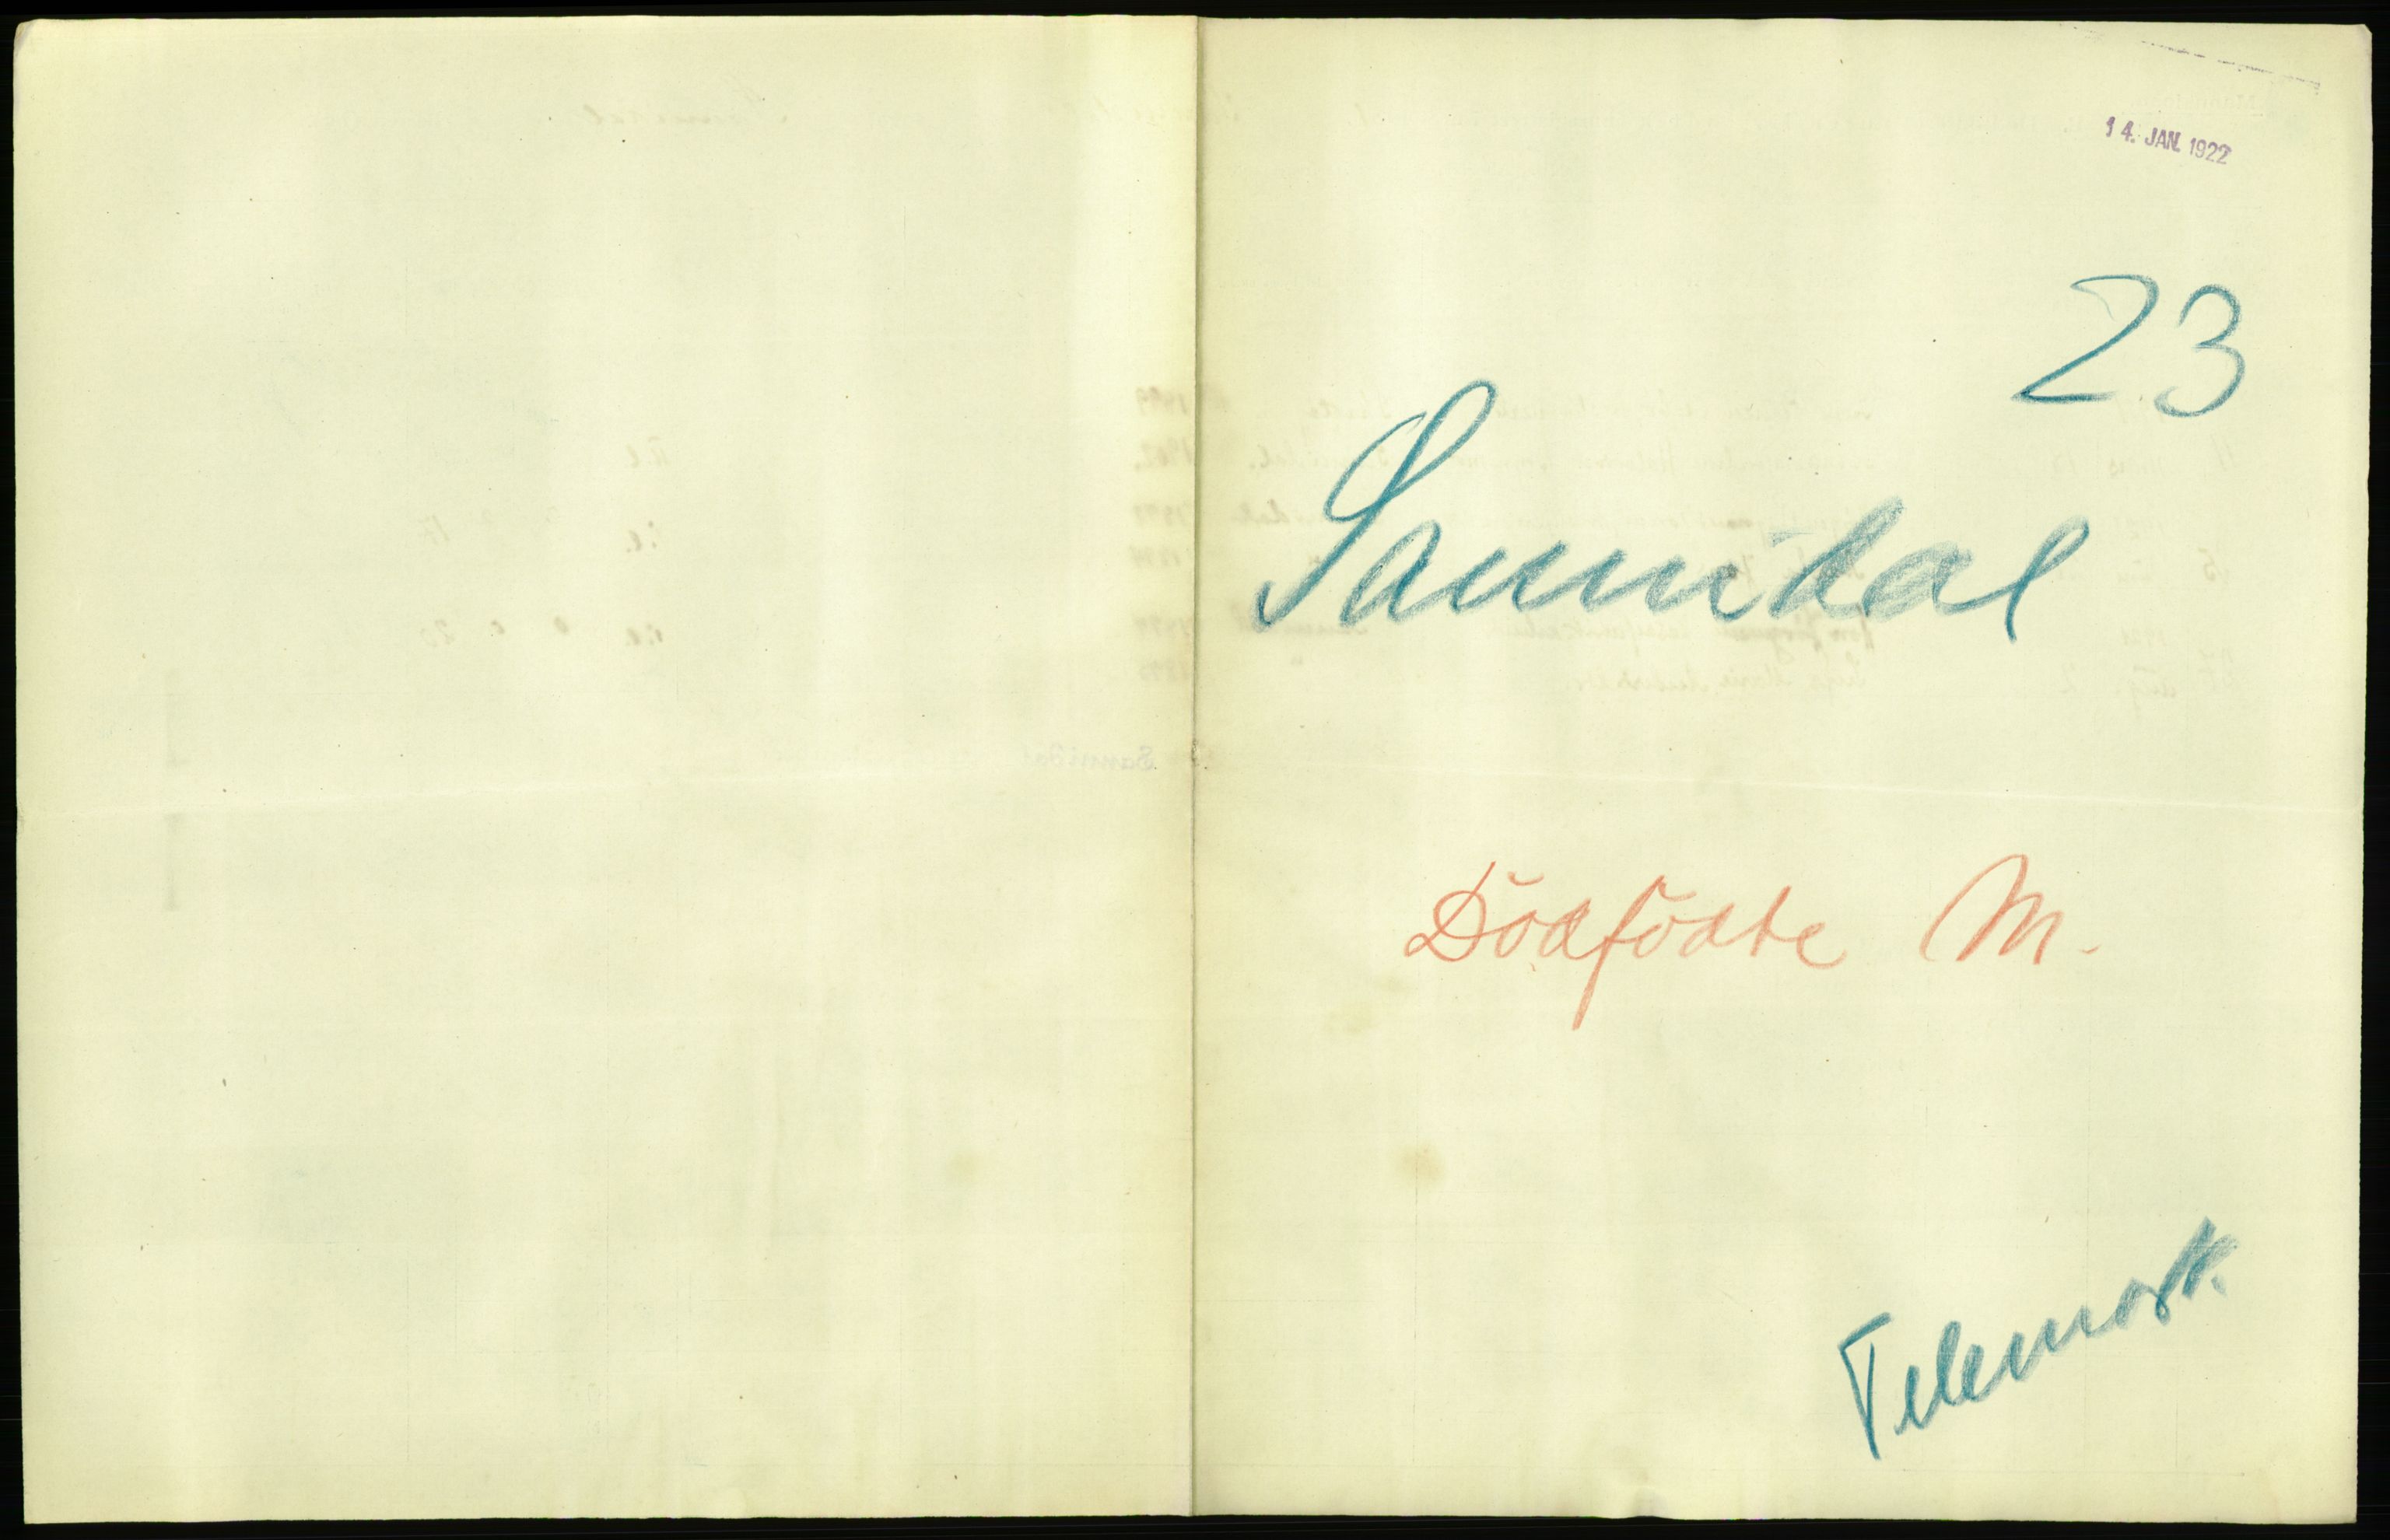 14. JAN. 1922
23
Sannidal
Dödfödte M.
Telemark.